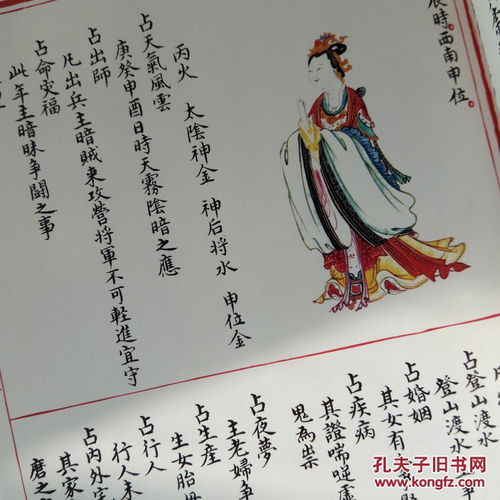 辰時西南申位。
丙火 太陰神金 神后將水 申位金
占天氣風雲
庚癸申酉日時天霧陰暗之應
占出師
凡出兵主暗賊來攻營將軍不可輕進宜守
占命災福
此年主暗昧爭鬪之事
占登山渡水
登山渡水
占婚姻
其女有
占疾病
其證喘
鬼為祟
占夜夢
主老婦爭
占生產
生女胎
占行人
行人未
占內外
其家
磨之
孔夫子旧书网
KONGFZ.COM